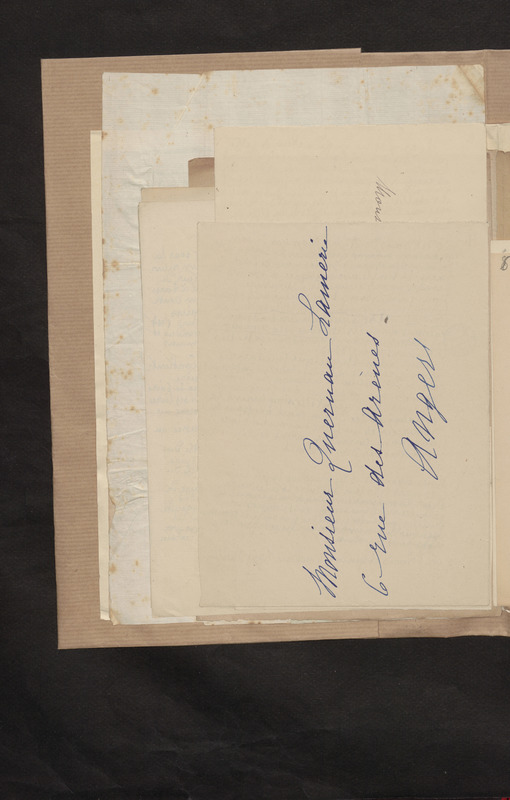 Monsieur Quernau Lamerie
6 rue des Arènes.
Angers